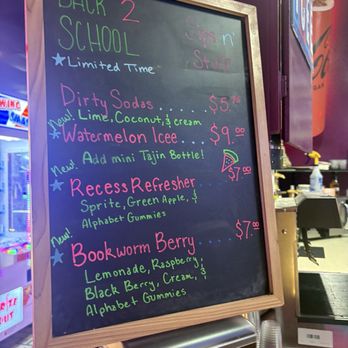 BACK 2
SCHOOL
Limited Time
Sip n'
Study
Dirty Sodas ..... $5.
New! Lime, Coconut, & cream
Watermelon Icee.. $9.00
New! Add mini Tajin Bottle!
Recess Refresher ... $7.00
Sprite, Green Apple, &
Alphabet Gummies
New!
Bookworm Berry ..... $7.00
Lemonade, Raspberry,
Black Berry, Cream, &
Alphabet Gummies